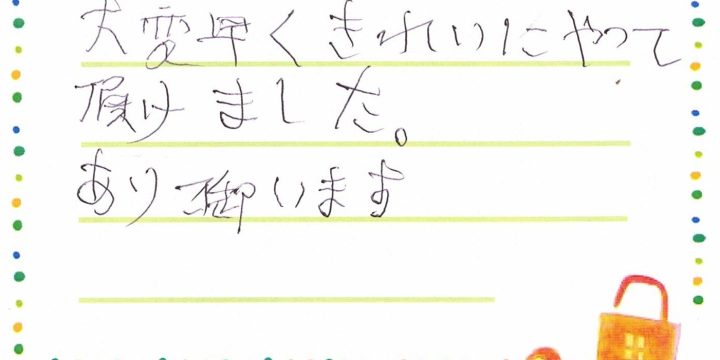 大変早くきれいにやって
頂けました。
あり御います